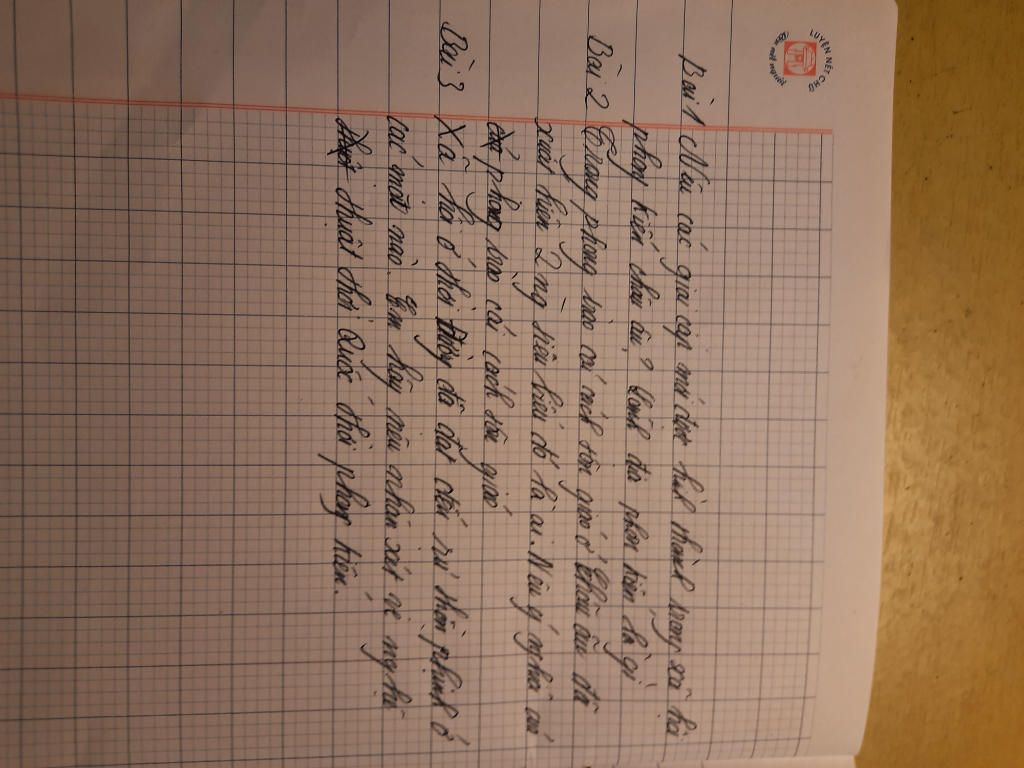 LUYỆN NÉT CHỮ
Bài 1 Nêu các giai cấp mới được hình thành trong xã hội
phong kiến châu âu? Lãnh địa phong kiến là gì
Bài 2 Trong phong trào cải cách tôn giáo ở Châu âu đã
xuất hiện 2 ng tiêu biểu đó là ai. Nêu ý nghĩa của
phong trào cải cách tôn giáo
Bài 3 Xã hội ở thời Đường đã đạt đến sự thịnh vượng ở
các mặt nào. Em hãy nêu nhận xét về nghệ
thuật thời Quốc thời phong kiến.